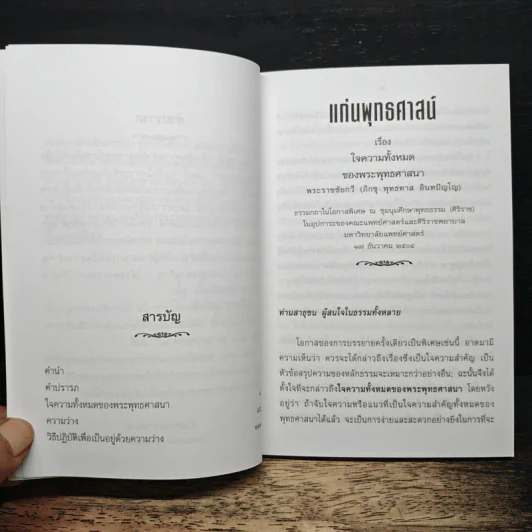 สารบัญ
คำนำ
คำปรารภ
ใจความทั้งหมดของพระพุทธศาสนา
ความว่าง
วิธีปฏิบัติเพื่อเป็นอยู่ด้วยความว่าง
แก่นพุทธศาสน์
เรื่อง
ใจความทั้งหมด
ของพระพุทธศาสนา
พระราชชัยกวี (ภิกขุ พุทธทาส อินทปัญโญ)
ธรรมกถาในโอกาสพิเศษ ณ ชุมนุมศึกษาพุทธธรรม (ศิริราช)
ในอุปการะของคณะแพทย์ศาสตร์และศิริราชพยาบาล
มหาวิทยาลัยแพทย์ศาสตร์
๑๗ ธันวาคม ๒๕๐๔
ท่านสาธุชน ผู้สนใจในธรรมทั้งหลาย
โอกาสของการบรรยายครั้งเดียวเป็นพิเศษเช่นนี้ อาตมามี
ความเห็นว่า ควรจะได้กล่าวถึงเรื่องซึ่งเป็นใจความสำคัญ เป็น
หัวข้อสรุปความของหลักธรรมจะเหมาะกว่าอย่างอื่น; ฉะนั้นจึงได้
ตั้งใจที่จะกล่าวถึงใจความทั้งหมดของพระพุทธศาสนา โดยหวัง
อยู่ว่า ถ้าจับใจความหรือแนวที่เป็นใจความสำคัญทั้งหมดของ
พุทธศาสนาได้แล้ว จะเป็นการง่ายและสะดวกอย่างยิ่งในการที่จะ